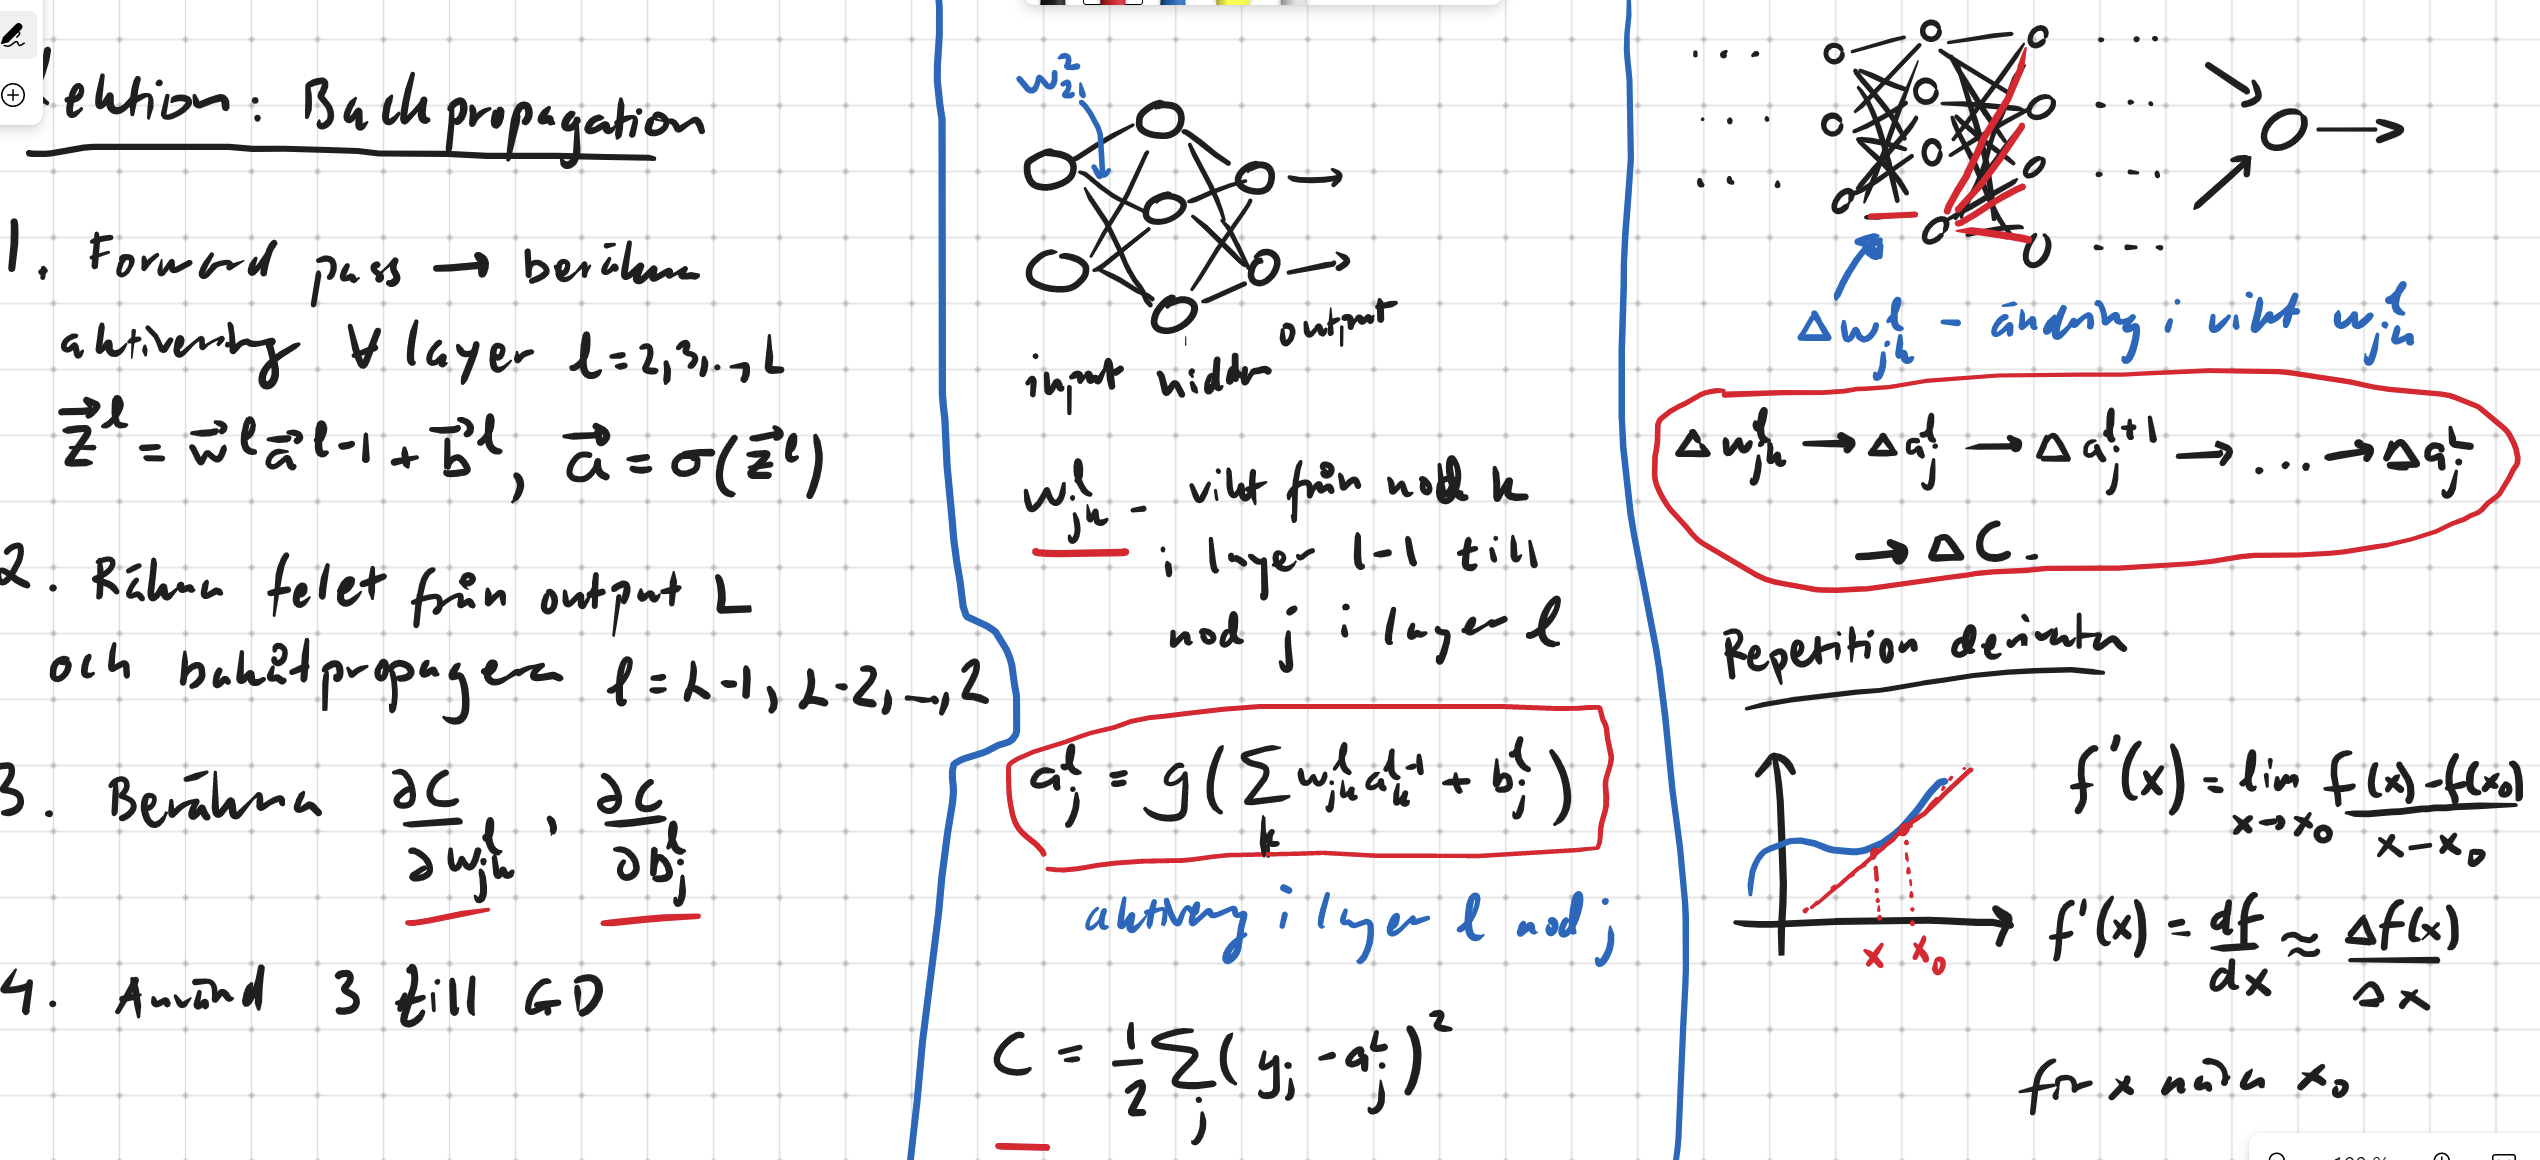 Lektion: Backpropagation
1. Forward pass → beräkna
aktivering ∀ layer l=2,3,..,L
z⃗^l = w⃗^l a⃗^l-1 + b⃗^l, a⃗ = σ(z⃗^l)
2. Räkna felet från output L
och bakåtpropagera l=L-1, L-2,..,2
3. Beräkna ∂C/∂w_jk^l , ∂C/∂b_j^l
4. Använd 3 till GD
w_21^2
output
input hidden
w_jk^l - vikt från nod k
i layer l-1 till
nod j i layer l
a_j^l = g(∑_k w_jk^l a_k^l-1 + b_j^l)
aktivering i layer l nod j
C = 1/2 ∑_j (y_j - a_j^L)^2
Δw_jk^l - ändring i vikt w_jk^l
Δw_jk^l → Δa_j^l → Δa_j^l+1 → ... → Δa_j^L
→ ΔC.
Repetition derivata
f'(x) = lim x→x_0 f(x)-f(x_0)/x-x_0
x x_0
f'(x) = df/dx ≈ Δf(x)/Δx
för x nära x_0